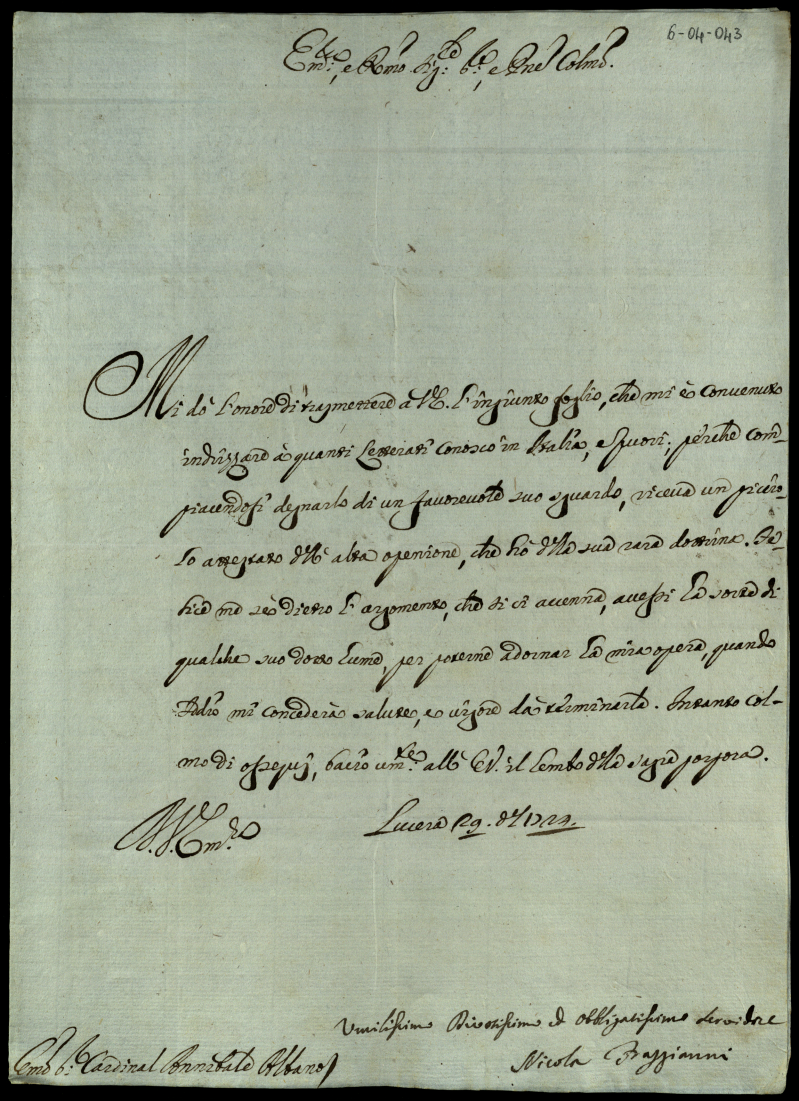 6-04-043
Em:, e Rmo Sig: e Pne Colmo.
Mi dò l'onore di trasmettere à V.E. l'ingiunto foglio, che mi è convenuto
indirizzare à quanti Letterati conosco in Italia, e fuori; perche com-
piacendosi degnarlo di un favorevole suo sguardo, riceva un picciо-
lo attestato dell'alta openione, che hò della sua rara dottrina. Fe-
lice me se dietro l'argomento, che si ci accenna, avessi la sorte di
qualche suo dotto lume, per poterne adornar la mia opera, quando
Iddio mi concederà salute, e vigore da terminarla. Intanto col-
mo di ossequj, bacio um:te all' E.V. il lembo della sagra porpora.
Di V. Em:
Lucera 29. del 1724.
Umilissimo Divotissimo ed Obbligatissimo Servidore
Nicola
Emo Cardinal Annibale Albani